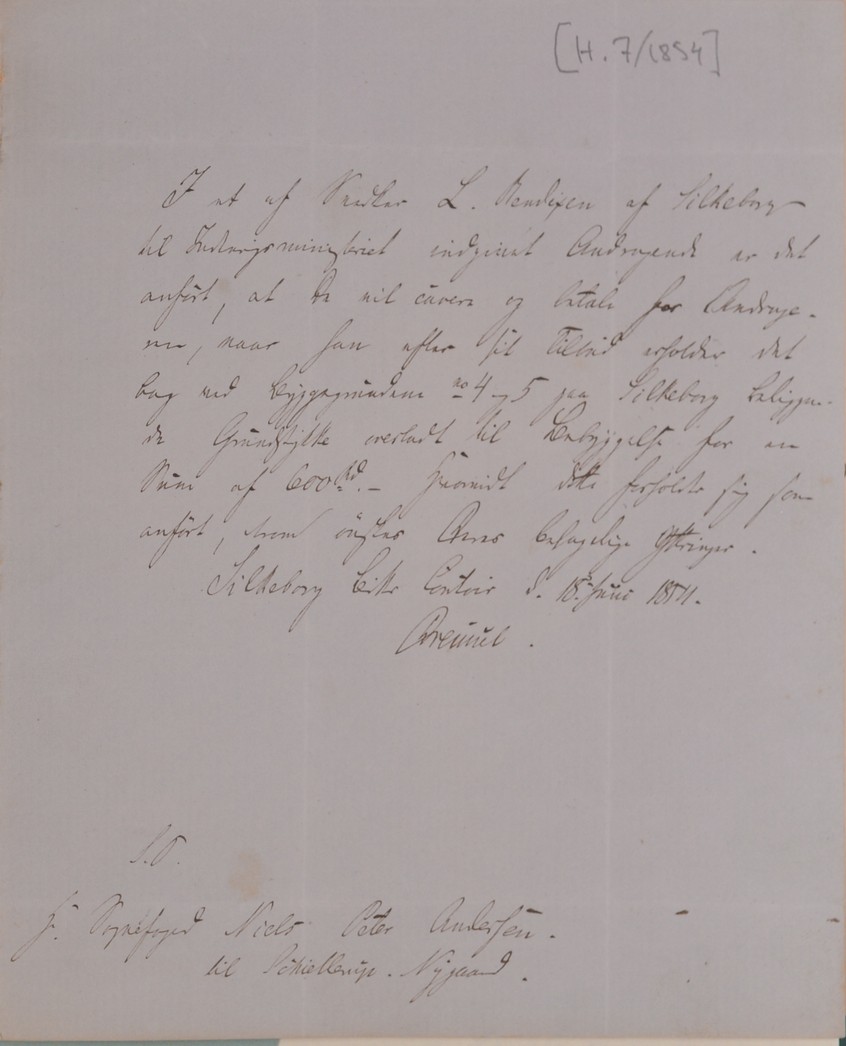 [H. 7/1854]
I et af Snedker L. Bendixen af Silkeborg
til Indenrigsministeriet indgivet Andragende er det
anført, at De vil cavere og betale for Andrage-
ren, naar han efter sit Tilbud erholder det
bag ved Byggegrundene no 4 og 5 paa Silkeborg beliggen-
de Grundstykke overladt til Bebyggelse for en
Sum af 600 Rd. – Hvorvidt dette forholder sig som
anført, derom ønskes Deres behagelige Yttringer.
Silkeborg Birks Contoir d. 18 Juni 1854.
Drewsen.
S.T.
Hr. Sognefoged Niels Peter Andersen.
til Schiellerup-Nygaard.